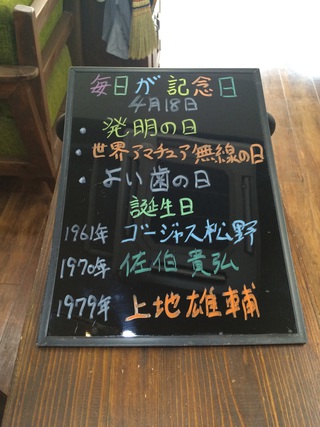 毎日が記念日
4月18日
・発明の日
・世界アマチュア無線の日
・よい歯の日
誕生日
1961年 ゴージャス松野
1970年 佐伯貴弘
1979年 上地雄輔